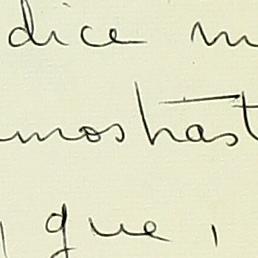 dice m
mostrast
que,